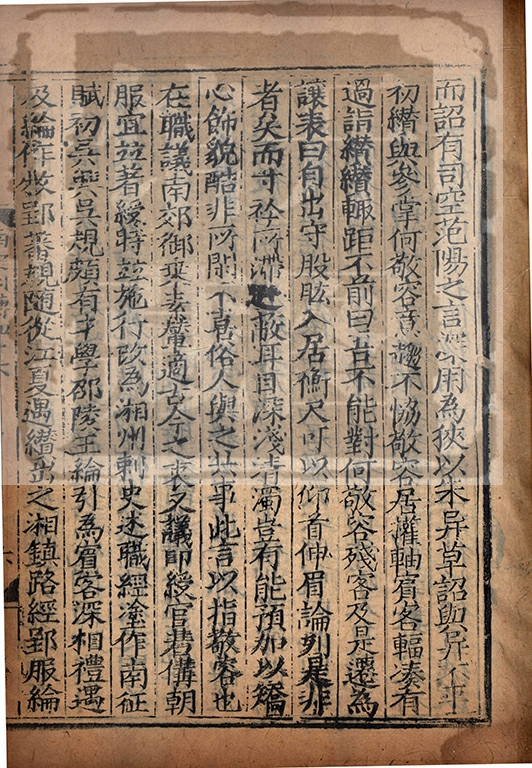 而詔有司空范陽之言深用為狹以朱异草詔與异不平
初纘與參掌何敬容意趣不恊敬容居權軸賓客輻凑有
過詣纘纘輙距不前曰吾不能對何敬容殘客及是遷為
讓表曰自出守股肱入居衡尺可以仰首伸眉論列是非
者矣而寸衿所滯近蔽耳目深淺清濁豈有能預加以矯
心飾貌酷非所閑不喜俗人與之共事此言以指敬容也
在職議南郊御乘素輦適古今之衷又議印綬官若備朝
服宜並著綬時並施行改為湘州刺史述職經塗作南征
賦初吳興吳規頗有才學邵陵王綸引為賓客深相禮遇
及綸作牧郢蕃規随從江夏遇纘出之湘鎮路經郢服綸